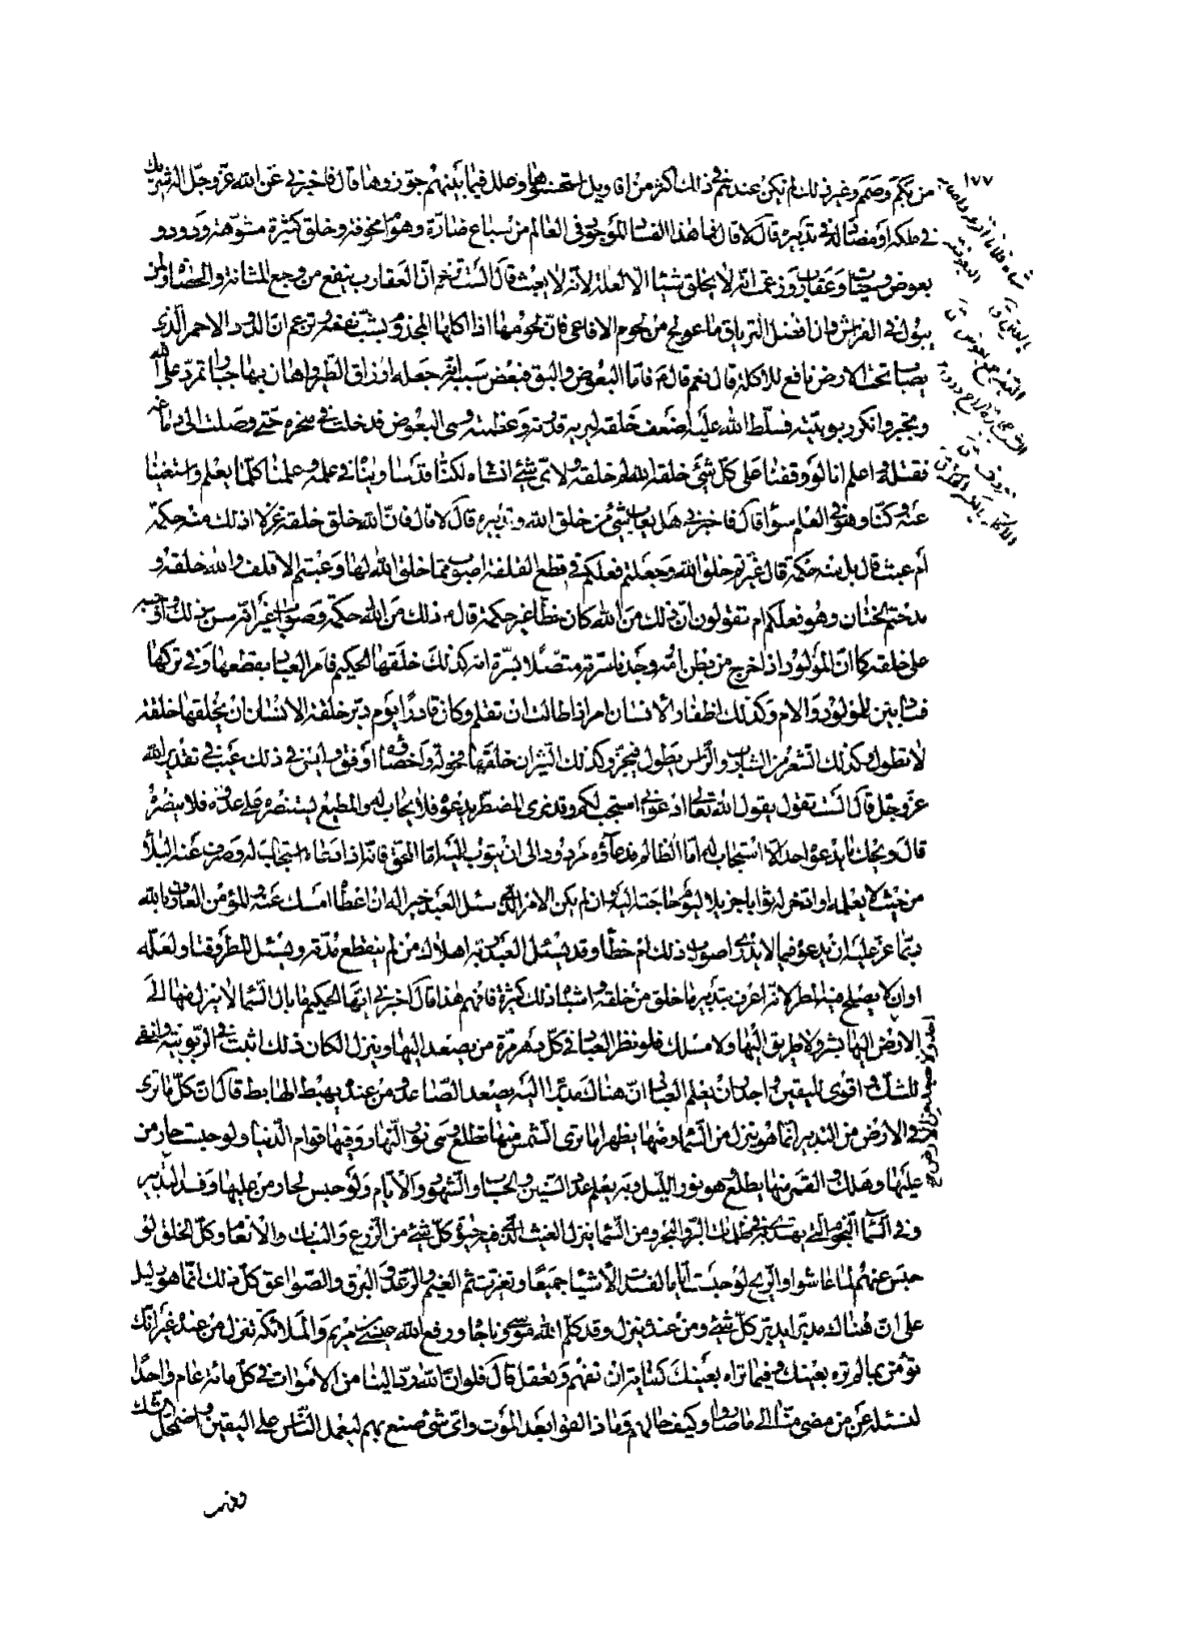 ١٧٧
من بكم وصم وغير ذلك لم يكن عندهم في ذلك أكثر من أقاويل استحسنوها وعلل فيما بينهم جوزوها قال فاخبرني عن الله عز وجل اله شريك
في ملكه او مضاد له في تدبيره قال لا قال فما هذا الفساد الموجود في العالم من سباع ضارة وهوام مخوفة وخلق كثيرة مشوهة ودود و
بعوض وحيات وعقارب وزعمت انه لا يخلق شيئا الا لعلة لانه لا يعبث قال الست تزعم ان العقارب ينفع من وجع المثانة والحصاة ولمن
يبول في الفراش وان افضل الترياق ما عولج من لحوم الافاعي فان لحومها اذا اكلها المجذوم بشب نفعه وتزعم ان الدود الاحمر الذي
يصاب تحت الارض نافع للاكلة قال نعم قال ع فاما البعوض والبق فبعض سببه انه جعله ارزاق الطير واهان بها جبارا تمرد على الله
وتجبر وانكر ربوبيته فسلط الله عليه اضعف خلقه ليريه قدرته وعظمته وهي البعوض فدخلت في منخره حتى وصلت الى دماغه
فقتله واعلم انا لو وقفنا على كل شئ خلقه الله لم خلقه ولاي شئ انشاه لكنا قد ساويناه في علمه وعلمنا كلما يعلم واستغنينا
عنه وكنا وهو في العلم سواء قال فاخبرني هل يعاب شئ من خلق الله وتدبيره قال لا قال فان الله خلق خلقه غرلا اذلك منه حكمة
ام عبث قال بل منه حكمة قال غيرتم خلق الله وجعلتم فعلكم في قطع القلفة اصوب مما خلق الله لها وعبتم الاقلف والله خلقه و
مدحتم الختان وهو فعلكم ام تقولون ان ذلك من الله كان خطأ غير حكمة قال ع ذلك من الله حكمة وصواب غير انه سن ذلك واوجبه
على خلقه كما ان المولود اذا خرج من بطن امه وجدنا سرته متصلا بسرة امه كذلك خلقها الحكيم فامر العباد بقطعها وفي تركها
فساد بين للمولود والام وكذلك اظفار الانسان امر اذا طالت ان تقلم وكان قادرا يوم دبر خلقة الانسان ان يخلقها خلقة
لا تطول وكذلك الشعر من الشارب والراس يطول فيجز وكذلك الثيران خلقها فحولة واخصاؤها اوفق وليس في ذلك عيب في تقدير الله
عز وجل قال الست تقول يقول الله تعالى ادعوني استجب لكم وقد نرى المضطر يدعوه فلا يجاب له والمطيع يستنصره على عدوه فلا ينصره
قال ويحك ما يدعوه احد الا استجاب له اما الظالم فدعاؤه مردود الى ان يتوب اليه واما المحق فانه اذا دعاه استجاب له وصرف عنه البلاء
من حيث لا يعلمه او ادخر له ثوابا جزيلا ليوم حاجته اليه وان لم يكن الامر الذي سئل العبد خير اله ان اعطاه امسك عنه والمؤمن العارف بالله
ربما عز عليه ان يدعوه فيما لا يدرى اصواب ذلك ام خطأ وقد يسئل العبد ربه اهلاك من لم ينقطع مدته ويسئل المطر وقتا ولعله
اوان لا يصلح فيه المطر لانه اعرف بتدبير ما خلق من خلقه واشباه ذلك كثيرة فافهم هذا قال اخبرني ايها الحكيم ما بال السماء لا ينزل منها الى
الارض احد ولا يصعد من الارض اليها بشر ولا طريق اليها ولا مسلك فلو نظر العباد في كل دهر مرة من يصعد اليها وينزل لكان ذلك اثبت في الربوبية وانفى
للشك واقوى لليقين واجدر ان يعلم العباد ان هناك مدبرا اليه يصعد الصاعد ومن عنده يهبط الهابط قال ان كل ما ترى
في الارض من التدبير انما هو ينزل من السماء ومنها يظهر اما ترى الشمس منها تطلع وهي نور النهار وفيها قوام الدنيا ولو حبست حار من
عليها وهلك والقمر منها يطلع وهو نور الليل وبه يعلم عدد السنين والحساب والشهور والايام ولو حبس لحار من عليها وفسد التدبير
وفي السماء النجوم التي يهتدى بها في ظلمات البر والبحر ومن السماء ينزل الغيث الذي فيه حيوة كل شئ من الزرع والنبات والانعام وكل الخلق لو
حبس عنهم لما عاشوا والريح لو حبست اياما لفسدت الاشياء جميعا وتغيرت ثم الغيم والرعد والبرق والصواعق كل ذلك انما هو دليل
على ان هناك مدبرا يدبر كل شئ ومن عنده ينزل وقد كلم الله موسى وناجاه ورفع الله عيسى بن مريم والملائكة تنزل من عنده غير انك
لا تؤمن بما لم تره بعينك وفيما تراه بعينك كفاية ان تفهم وتعقل قال فلو ان الله رد الينا من الاموات في كل مائة عام واحدا
لنسئله عمن مضى منا الى ما صاروا وكيف حالهم وماذا لقوا بعد الموت واي شئ صنع بهم ليعمل الناس على اليقين واضمحل الشك